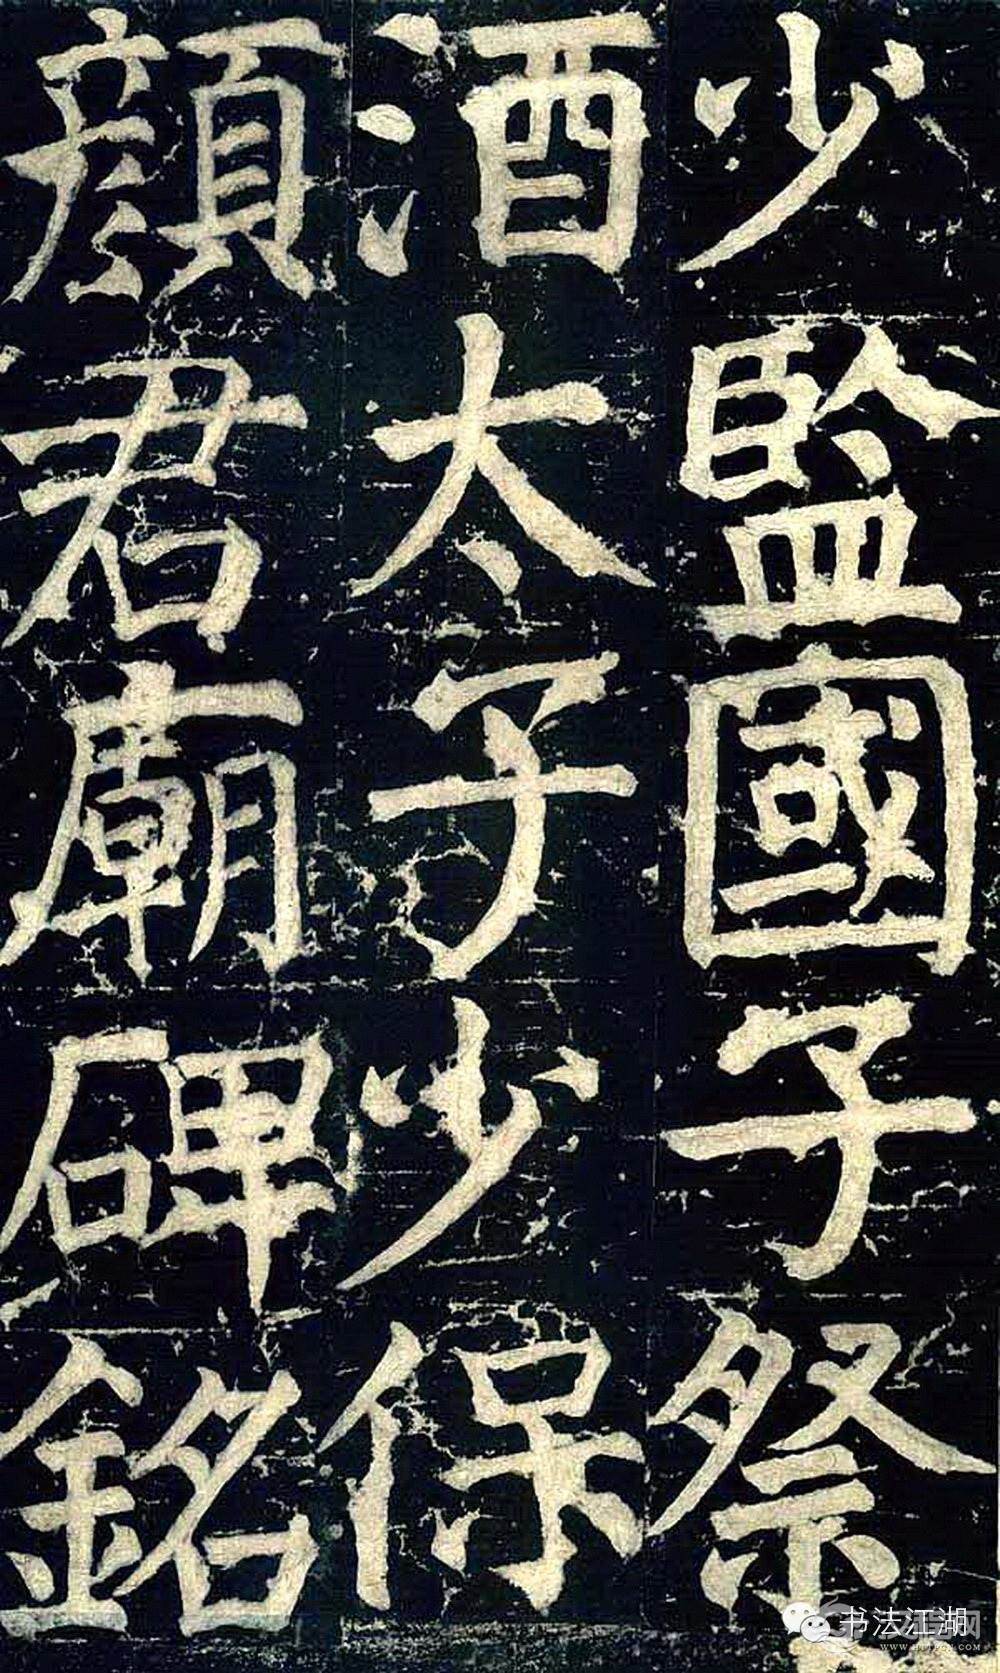 少監國子祭
酒太子少保
顏君廟碑銘
书法江湖